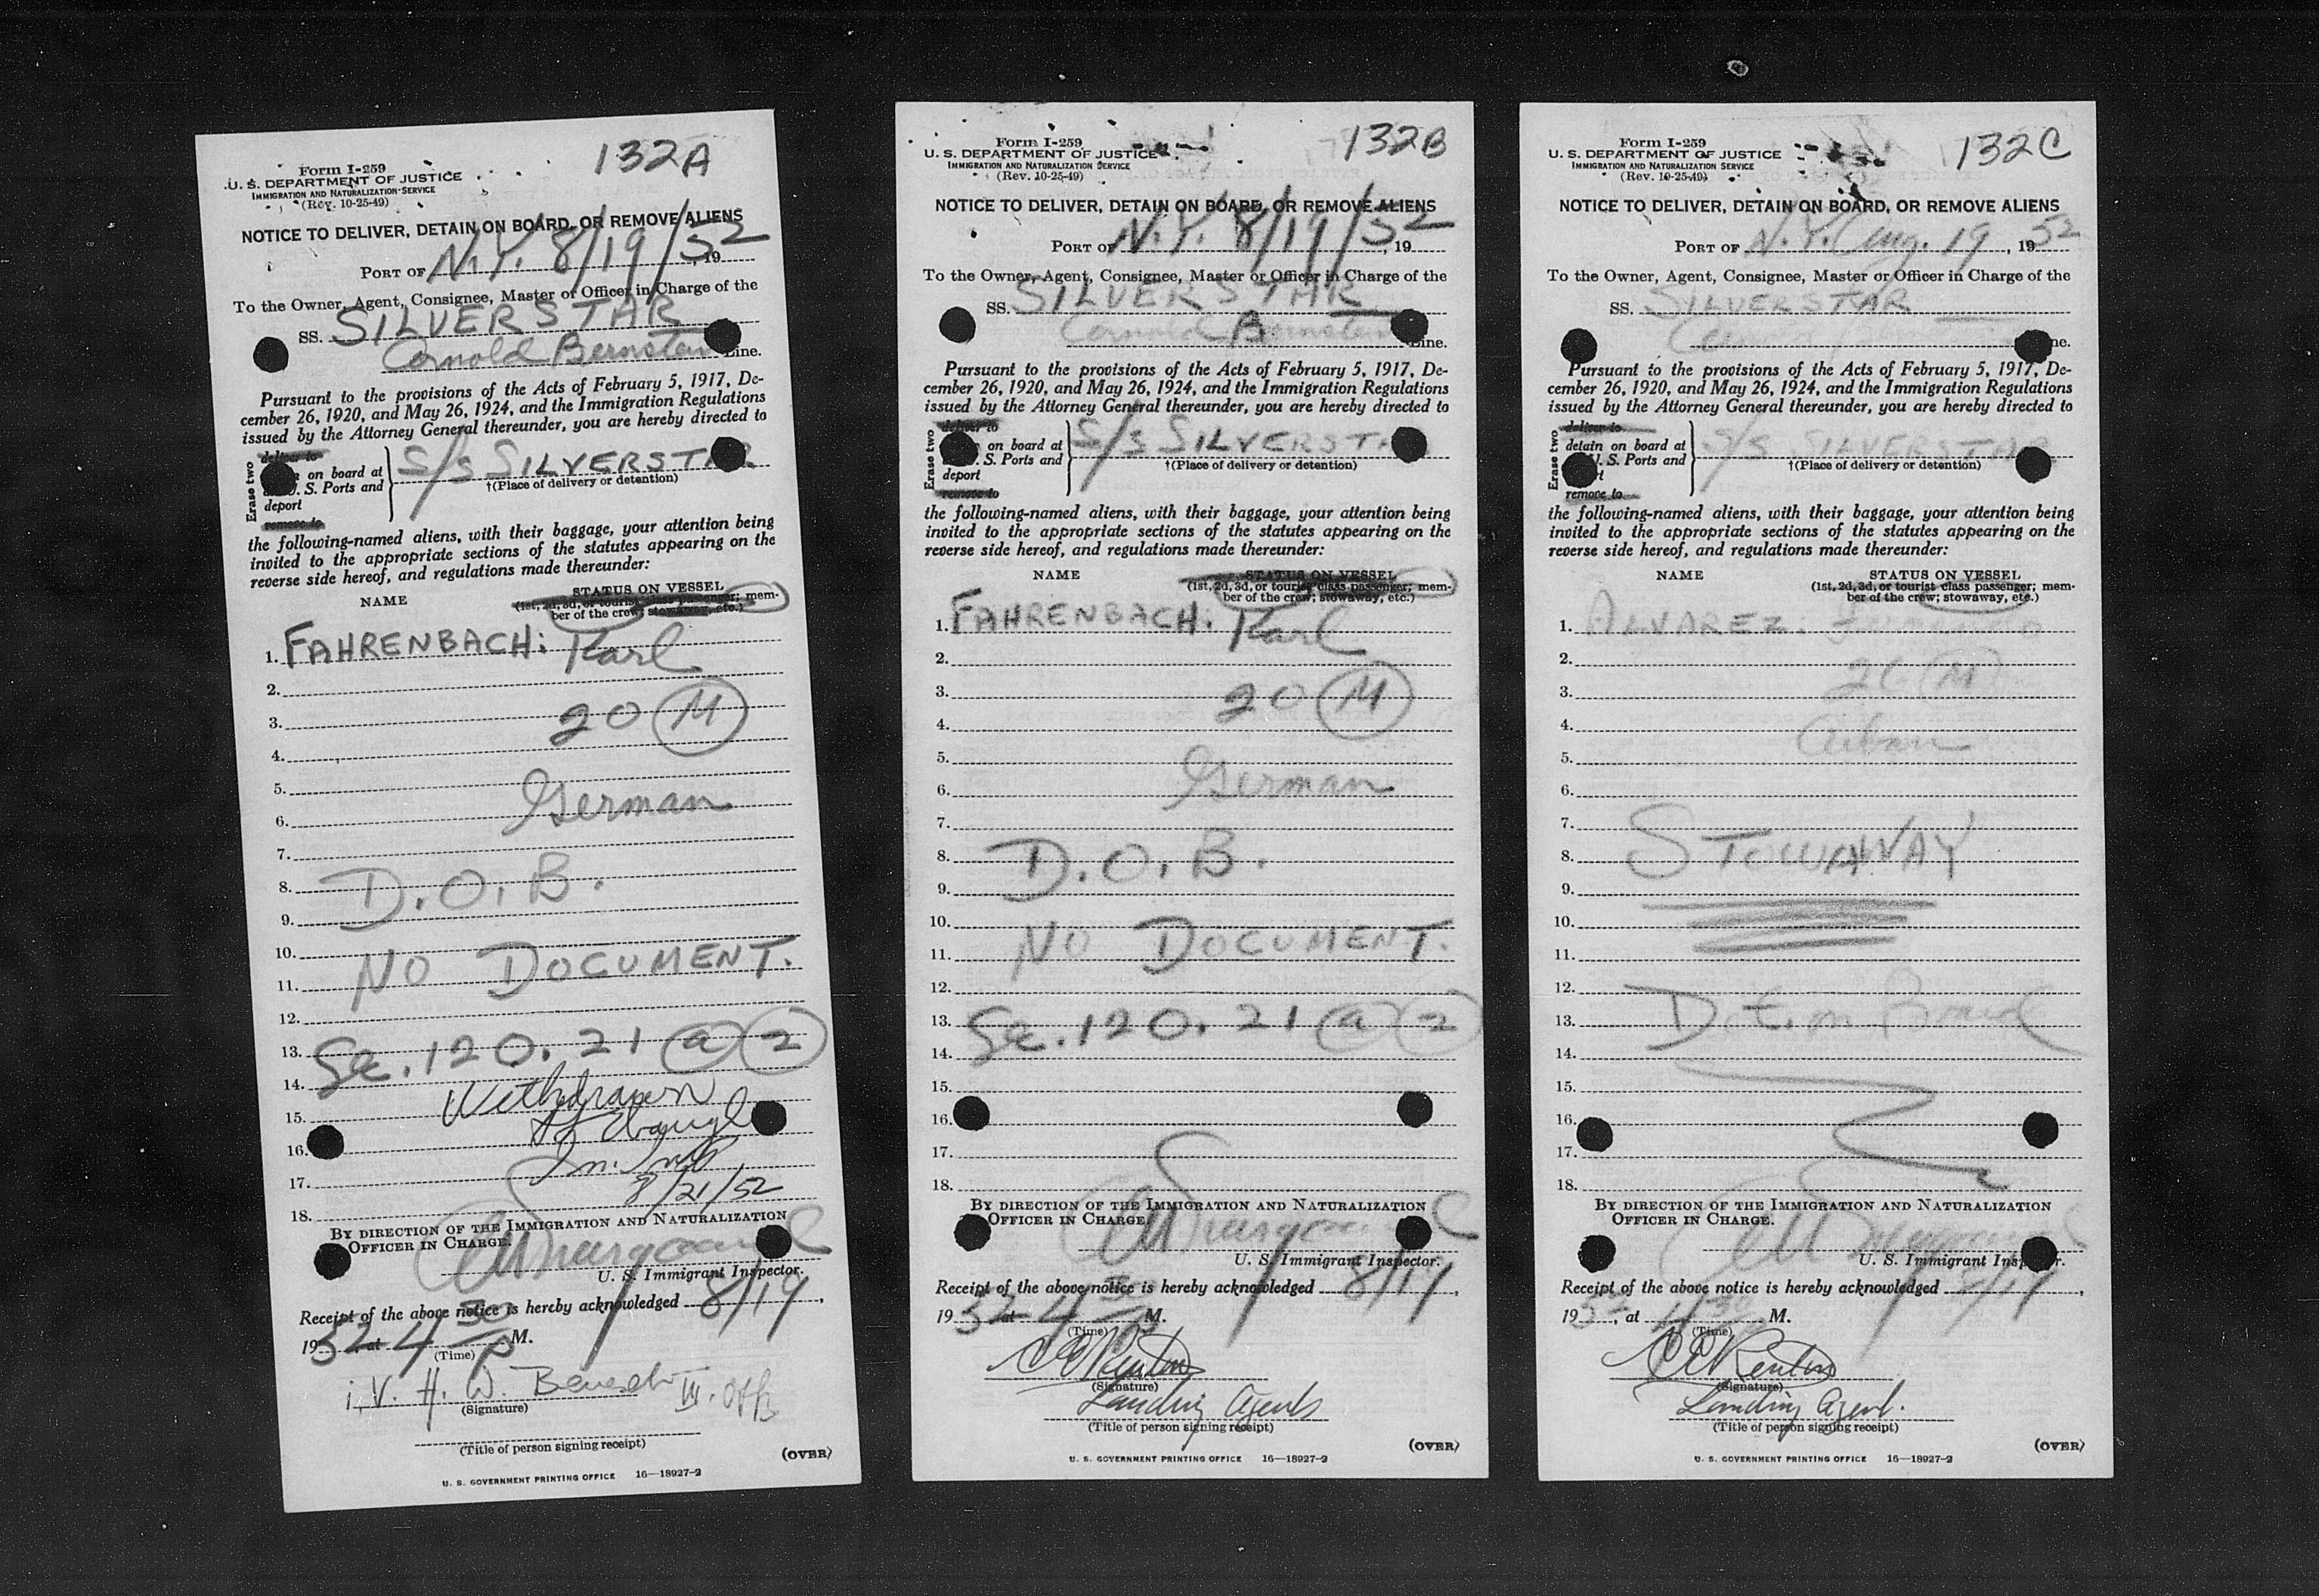 132A
Form I-259
U. S. DEPARTMENT OF JUSTICE
IMMIGRATION AND NATURALIZATION SERVICE
(Rev. 10-25-49)
NOTICE TO DELIVER, DETAIN ON BOARD, OR REMOVE ALIENS
PORT OF N.Y. 8/19/52, 19
To the Owner, Agent, Consignee, Master or Officer in Charge of the
SS. SILVERSTAR
Arnold Bernstein Line.
Pursuant to the provisions of the Acts of February 5, 1917, De-
cember 26, 1920, and May 26, 1924, and the Immigration Regulations
issued by the Attorney General thereunder, you are hereby directed to
Erase two
deliver to
on board at
U. S. Ports and
deport
remove to
S/S SILVERSTAR
†(Place of delivery or detention)
the following-named aliens, with their baggage, your attention being
invited to the appropriate sections of the statutes appearing on the
reverse side hereof, and regulations made thereunder:
NAME
STATUS ON VESSEL
(1st, 2d, 3d, or tourist class passenger; mem-
ber of the crew; stowaway, etc.)
1. FAHRENBACH: Karl
2.
3. 20 M
4.
5.
6. German
7.
8. D.O.B.
9.
10.
11. NO DOCUMENT.
12.
13. Sec. 120.21 a 2
14.
15. Withdrawn
16.
17.
8/21/52
18.
BY DIRECTION OF THE IMMIGRATION AND NATURALIZATION
OFFICER IN CHARGE.
U. S. Immigrant Inspector.
Receipt of the above notice is hereby acknowledged 8/19,
1952 at 4 30 P M.
(Time)
i.V. H. W. III. Off
(Signature)
(Title of person signing receipt)
(OVER)
U. S. GOVERNMENT PRINTING OFFICE 16—18927-2
132B
Form I-259
U. S. DEPARTMENT OF JUSTICE
IMMIGRATION AND NATURALIZATION SERVICE
(Rev. 10-25-49)
NOTICE TO DELIVER, DETAIN ON BOARD, OR REMOVE ALIENS
PORT OF N.Y. 8/19/52, 19
To the Owner, Agent, Consignee, Master or Officer in Charge of the
SS. SILVERSTAR
Arnold Bernstein Line.
Pursuant to the provisions of the Acts of February 5, 1917, De-
cember 26, 1920, and May 26, 1924, and the Immigration Regulations
issued by the Attorney General thereunder, you are hereby directed to
Erase two
deliver to
on board at
U. S. Ports and
deport
remove to
S/S SILVERSTAR
†(Place of delivery or detention)
the following-named aliens, with their baggage, your attention being
invited to the appropriate sections of the statutes appearing on the
reverse side hereof, and regulations made thereunder:
NAME
STATUS ON VESSEL
(1st, 2d, 3d, or tourist class passenger; mem-
ber of the crew; stowaway, etc.)
1. FAHRENBACH: Karl
2.
3. 20 M
4.
5.
6. German
7.
8. D.O.B.
9.
10.
11. NO DOCUMENT.
12.
13. Sec. 120.21 a 2
14.
15.
16.
17.
18.
BY DIRECTION OF THE IMMIGRATION AND NATURALIZATION
OFFICER IN CHARGE.
U. S. Immigrant Inspector.
Receipt of the above notice is hereby acknowledged 8/19,
1952 at 4 30 M.
(Time)
(Signature)
Landing Agents
(Title of person signing receipt)
(OVER)
U. S. GOVERNMENT PRINTING OFFICE 16—18927-2
132C
Form I-259
U. S. DEPARTMENT OF JUSTICE
IMMIGRATION AND NATURALIZATION SERVICE
(Rev. 10-25-49)
NOTICE TO DELIVER, DETAIN ON BOARD, OR REMOVE ALIENS
PORT OF N.Y. Aug. 19, 1952
To the Owner, Agent, Consignee, Master or Officer in Charge of the
SS. SILVERSTAR
Line.
Pursuant to the provisions of the Acts of February 5, 1917, De-
cember 26, 1920, and May 26, 1924, and the Immigration Regulations
issued by the Attorney General thereunder, you are hereby directed to
Erase two
deliver to
detain on board at
U. S. Ports and
remove to
S/S SILVERSTAR
†(Place of delivery or detention)
the following-named aliens, with their baggage, your attention being
invited to the appropriate sections of the statutes appearing on the
reverse side hereof, and regulations made thereunder:
NAME
STATUS ON VESSEL
(1st, 2d, 3d, or tourist class passenger; mem-
ber of the crew; stowaway, etc.)
1. ALVAREZ:
2.
3. 26 M
4.
5. Cuban
6.
7.
8. STOWAWAY
9.
10.
11.
12.
13. Det. on Board
14.
15.
16.
17.
18.
BY DIRECTION OF THE IMMIGRATION AND NATURALIZATION
OFFICER IN CHARGE.
U. S. Immigrant Inspector.
Receipt of the above notice is hereby acknowledged 8/19,
1952, at 4 30 M.
(Time)
(Signature)
Landing Agent.
(Title of person signing receipt)
(OVER)
U. S. GOVERNMENT PRINTING OFFICE 16—18927-2